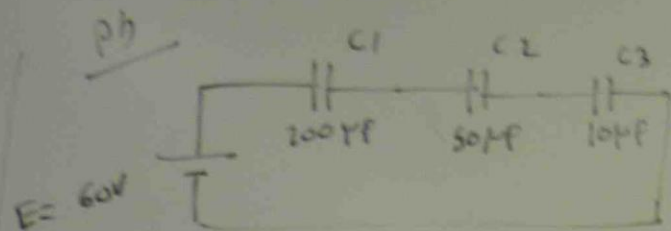 pb
C1 C2 C3
200μF 50μF 10μF
E= 60V